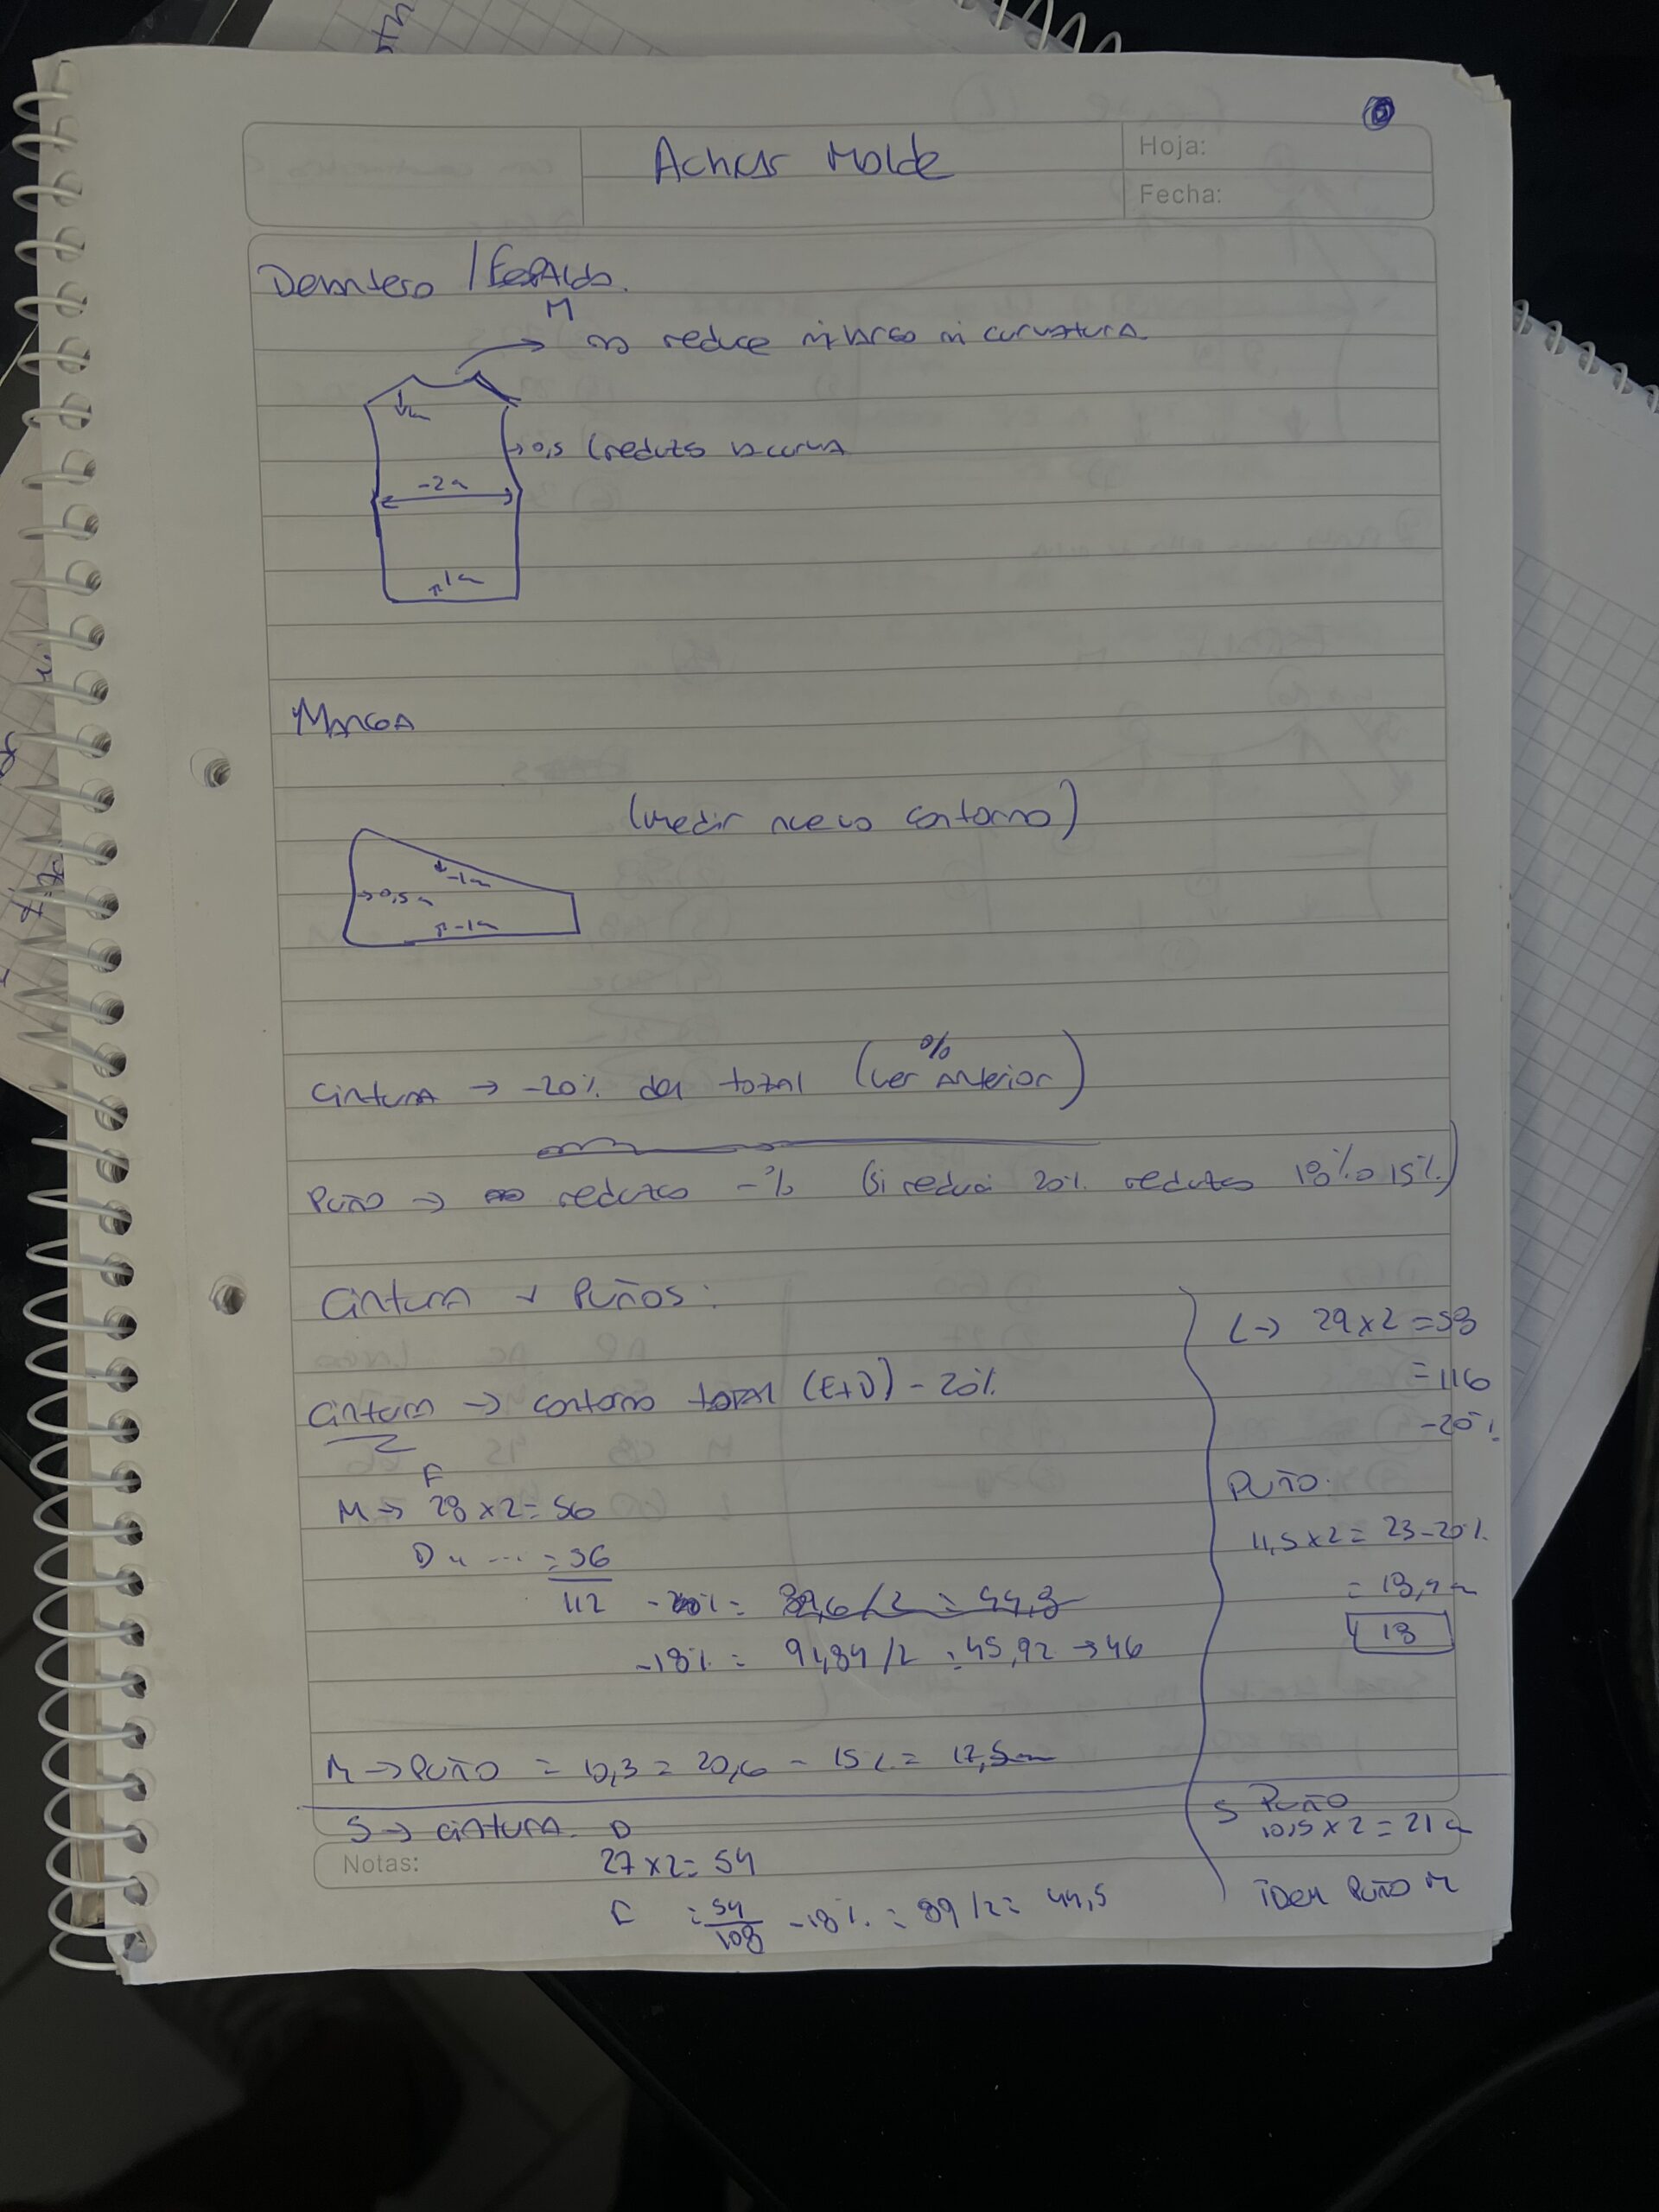 Achicar Molde
Hoja:
Fecha:
Delantero / Espalda.
M
no reduce ni largo ni curvatura
0,5 (reduzco la curva
-2
1
Manga
(medir nuevo contorno)
-1
0,5
-1
Cintura → -20% del total (ver % anterior)
Puño → reduzco -% (si reduci 20% reduzco 18% o 15%)
Cintura y Puños:
Cintura → contorno total (E+D) - 20%
F
M → 28 x 2 = 56
D " ... = 56
112 -20% = 89,6/2 = 44,8
-18% = 91,84/2 = 45,92 → 46
M → Puño = 10,3 = 20,6 - 15% = 17,5cm
L → 29 x 2 = 58
= 116
-20%
Puño.
11,5 x 2 = 23 - 20%
= 18,4
18
S → cintura. D
27 x 2 = 54
E = 54
108 -18% = 89/2 = 44,5
S Puño
10,5 x 2 = 21
idem puño M
Notas: